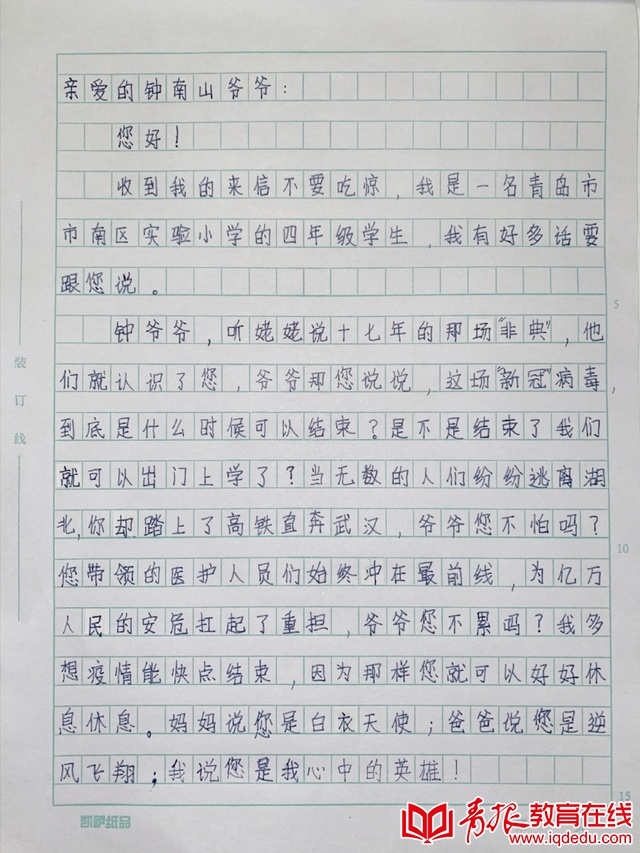 亲爱的钟南山爷爷：
您好！
收到我的来信不要吃惊，我是一名青岛市
市南区实验小学的四年级学生，我有好多话要
跟您说。
钟爷爷，听姥姥说十七年的那场“非典”，他
们就认识了您，爷爷那您说说，这场“新冠”病毒，
到底是什么时候可以结束？是不是结束了我们
就可以出门上学了？当无数的人们纷纷逃离湖
北，你却踏上了高铁直奔武汉，爷爷您不怕吗？
您带领的医护人员们始终冲在最前线，为亿万
人民的安危扛起了重担，爷爷您不累吗？我多
想疫情能快点结束，因为那样您就可以好好休
息休息。妈妈说您是白衣天使；爸爸说您是逆
风飞翔；我说您是我心中的英雄！
装订线
5
10
15
凯萨纸品
青报教育在线
www.iqdedu.com